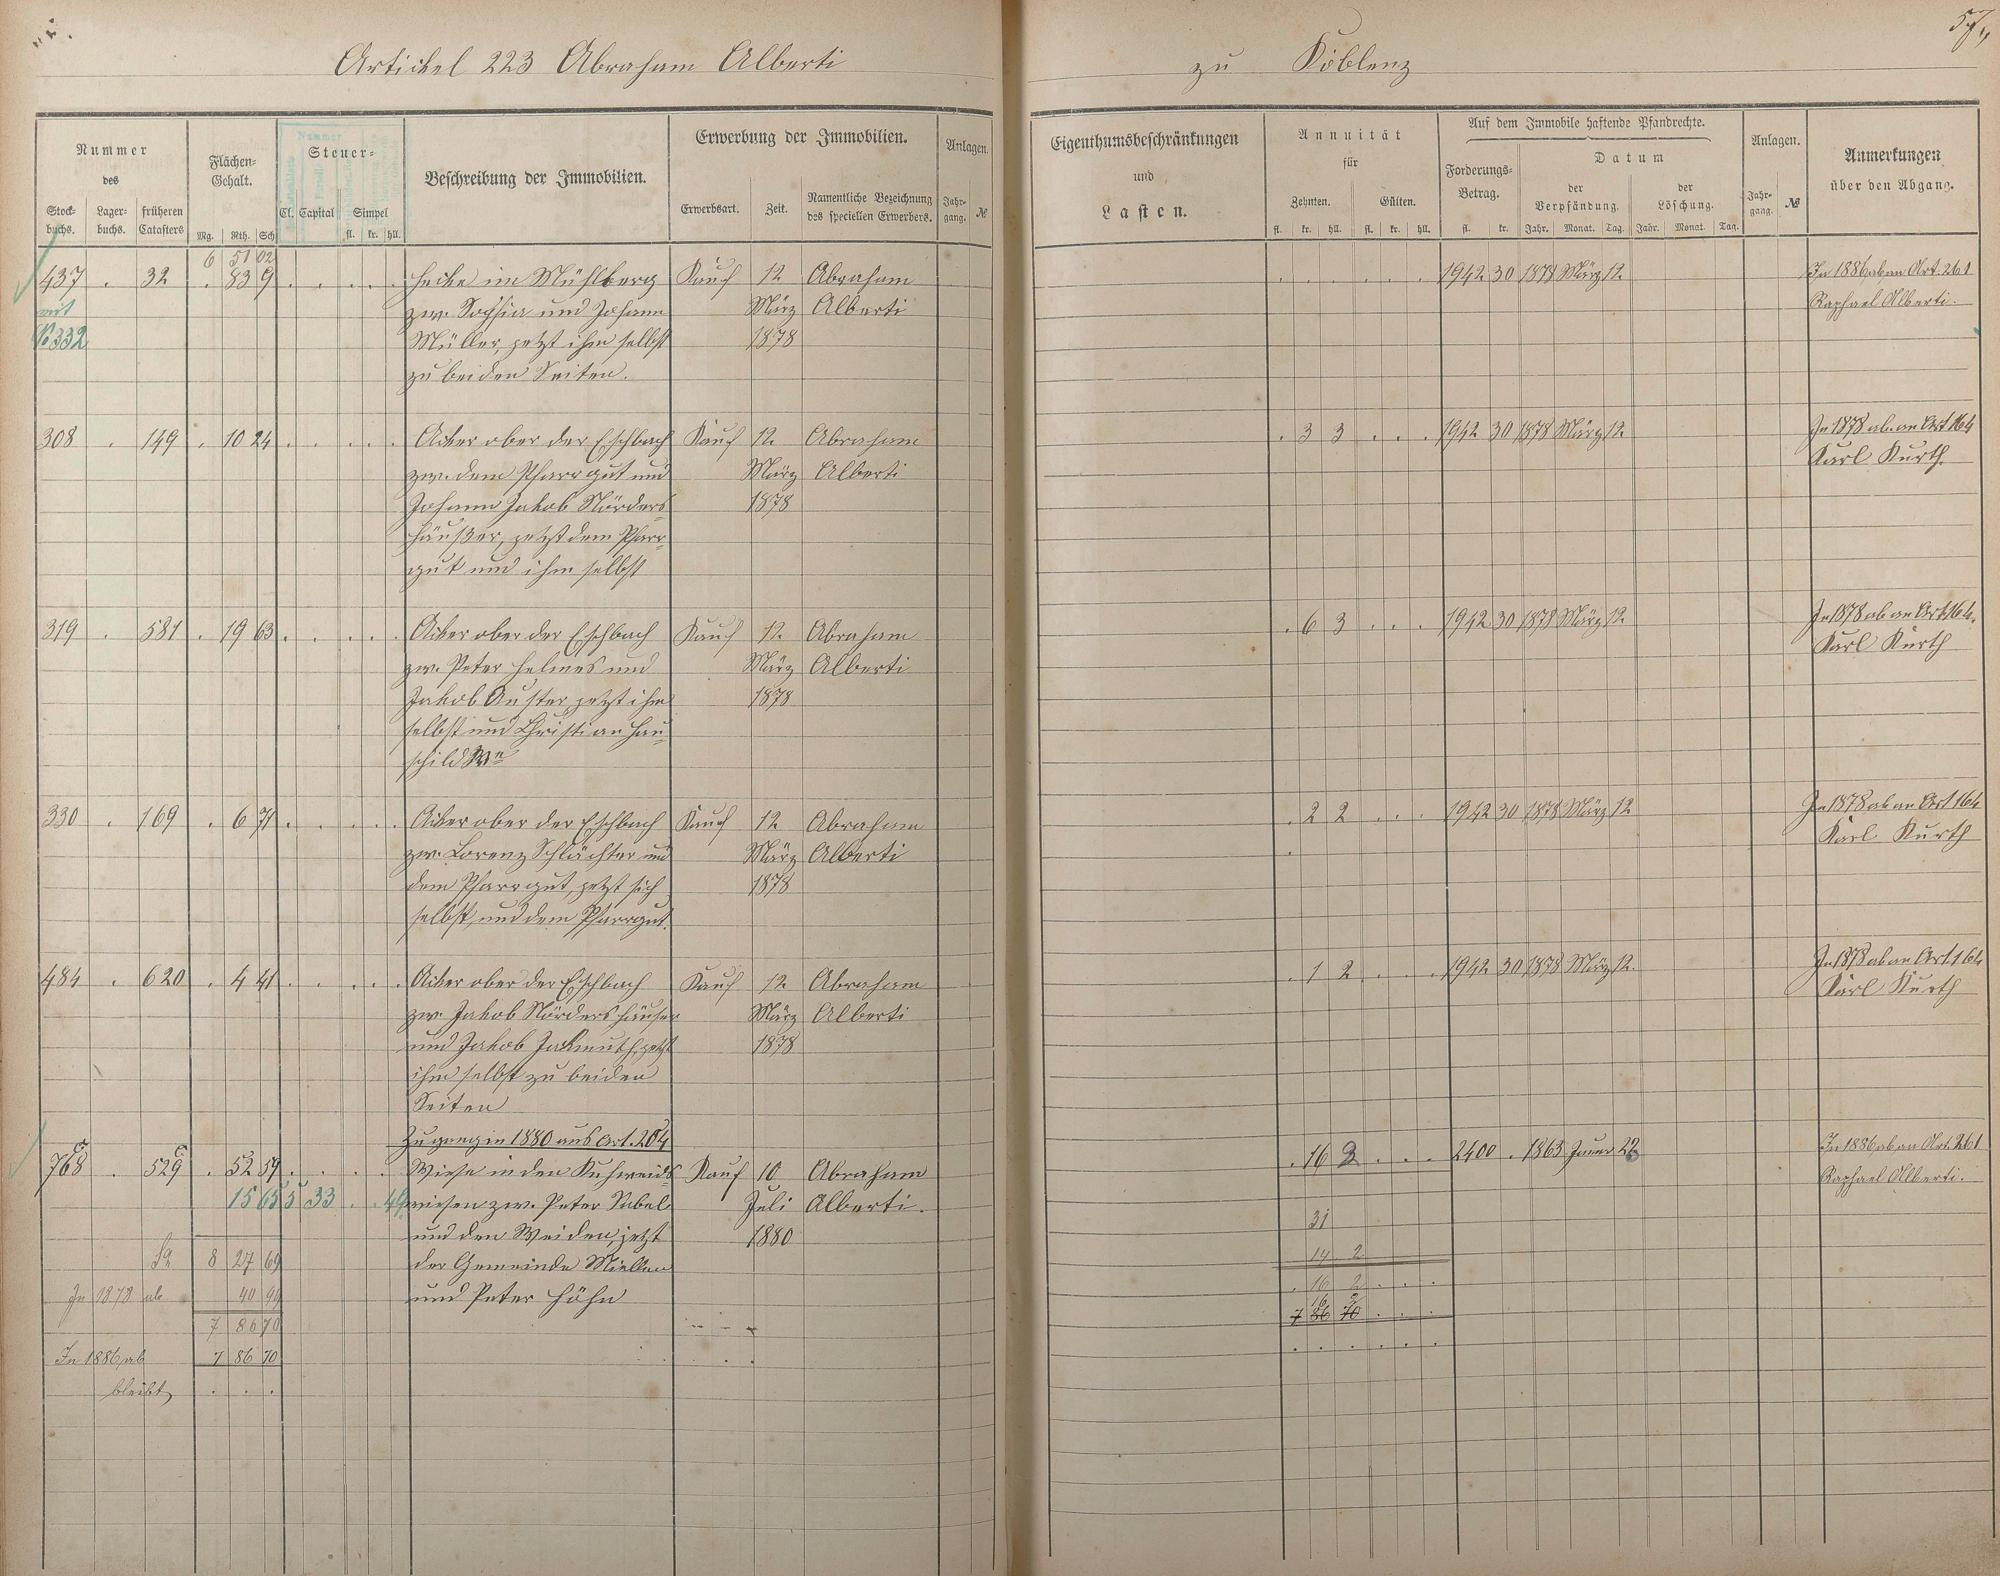 57.
Artickel 223 Abraham Alberti zu Koblenz
Nummer des
Stock- buchs. Lager- buchs. früheren Catasters
Flächen- Gehalt.
Mg. Rth. Sch
Steuer-
Cl. Capital Simpel
fl. kr. hll.
Beschreibung der Immobilien.
Erwerbung der Immobilien.
Erwerbsart. Zeit. Namentliche Bezeichnung des speciellen Erwerbers.
Anlagen.
Jahr- gang. №
Eigenthumsbeschränkungen
und
Lasten.
Annuität
für
Zehnten. Gülten.
fl. kr. hll. fl. kr. hll.
Auf dem Immobile haftende Pfandrechte.
Forderungs- Betrag.
fl. kr.
Datum
der Verpfändung. der Löschung.
Jahr. Monat. Tag. Jahr. Monat. Tag.
Anlagen.
Jahr- gang. №
Anmerkungen
über den Abgang.
6 51 02
437 . 32 . 83 9 . . . . . Hecke im Mühlberg Kauf 12 Abraham . . . . . . 1942 30 1878 März 12 In 1886 ab an Art. 261
mit zw. Sophia und Johann März Alberti Raphael Alberti.
№ 332 Müller, jetzt ihm selbst 1878
zu beiden Seiten.
308 . 149 . 10 24 . . . . . Acker ober der Eschbach Kauf 12. Abraham . 3 3 . . . 1942 30 1878 März 12. In 1878 ab an Art 164
zw. dem Pfarrgut und März Alberti Karl Kurth.
Johann Jakob Nörders- 1878
häußer, jetzt dem Pfarr-
gut und ihm selbst
319 . 581 . 19 63 . . . . . Acker ober der Eschbach Kauf 12. Abraham . 6 3 . . . 1942 30 1878 März 12. In 1878 ab an Art. 164.
zw. Peter Helmes und März Alberti Karl Kurth
Jakob Auster, jetzt ihm 1878
selbst und Christian Hau-
schild We
330 . 169 . 6 71 . . . . . Acker ober der Eschbach Kauf 12 Abraham . 2 2 . . . 1942 30 1878 März 12 In 1878 ab an Art 164
zw. Lorenz Schlächter und März Alberti Karl Kurth
dem Pfarrgut, jetzt sich 1878
selbst, und dem Pfarrgut.
484 . 620 . 4 41 . . . . . Acker ober der Eschbach Kauf 12 Abraham . 1 2 . . . 1942 30 1878 März 12. In 1878 ab an Art. 164
zw. Jakob Nördershäuser März Alberti Karl Kurth
und Jakob Jackmuth, jetzt 1878
ihm selbst zu beiden
Seiten
Zugang in 1880 aus Art. 204
768 . 529 . 52 59 . . . . . Wiese in den Kuhweids- Kauf 10 Abraham . 16 2 . . . 2400 . 1863 Januar 22 In 1886 ab an Art. 261
15 65 5 33 . . 44 wiesen zw. Peter Nebel Juli Alberti. Raphael Alberti.
und den Weiden, jetzt 1880 31
8 27 69 der Gemeinde Miellen 14 2
In 1878 ab 40 99 und Peter Höhn . 16 2 . . .
7 86 70 16 2
7 86 70 . . .
In 1886 ab 7 86 70
bleibt . . .